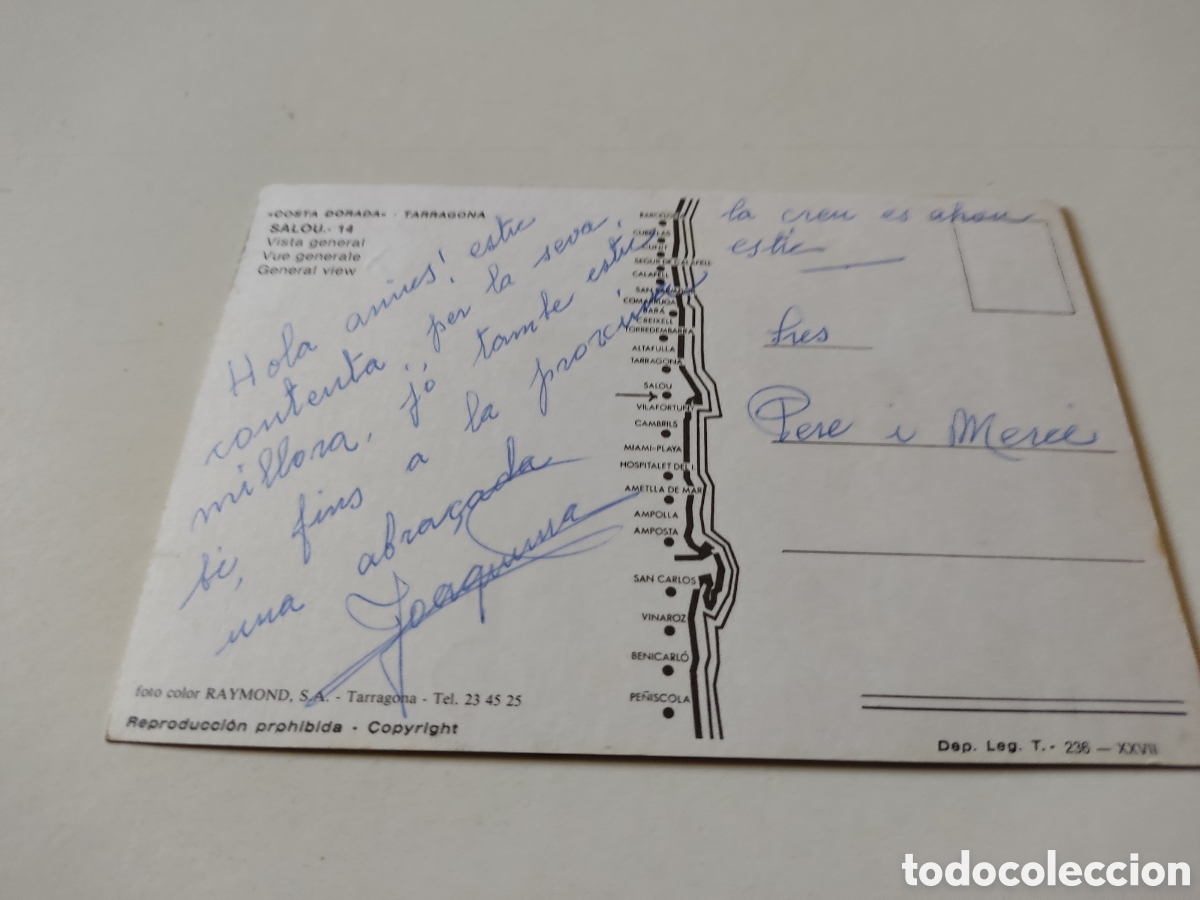 «COSTA DORADA» - TARRAGONA
SALOU.- 14
Vista general
Vue generale
General view
Hola amics! estic
contenta, per la seva,
millora, jo tambe estic
bé, fins a la proxima
una abraçada
Joaquima
foto color RAYMOND, S.A. - Tarragona - Tel. 23 45 25
Reproducción prohibida - Copyright
BARCELONA
CUBELLAS
CUNIT
SEGUR DE CALAFELL
CALAFELL
SAN SALVADOR
COMARRUGA
BARÁ
CREIXELL
TORREDEMBARRA
ALTAFULLA
TARRAGONA
SALOU
VILAFORTUNY
CAMBRILS
MIAMI-PLAYA
HOSPITALET DEL I.
AMETLLA DE MAR
AMPOLLA
AMPOSTA
SAN CARLOS
VINAROZ
BENICARLÓ
PEÑISCOLA
la creu es ahon
estic
Sres
Pere i Merce
Dep. Leg. T.- 236 — XXVII
todocoleccion